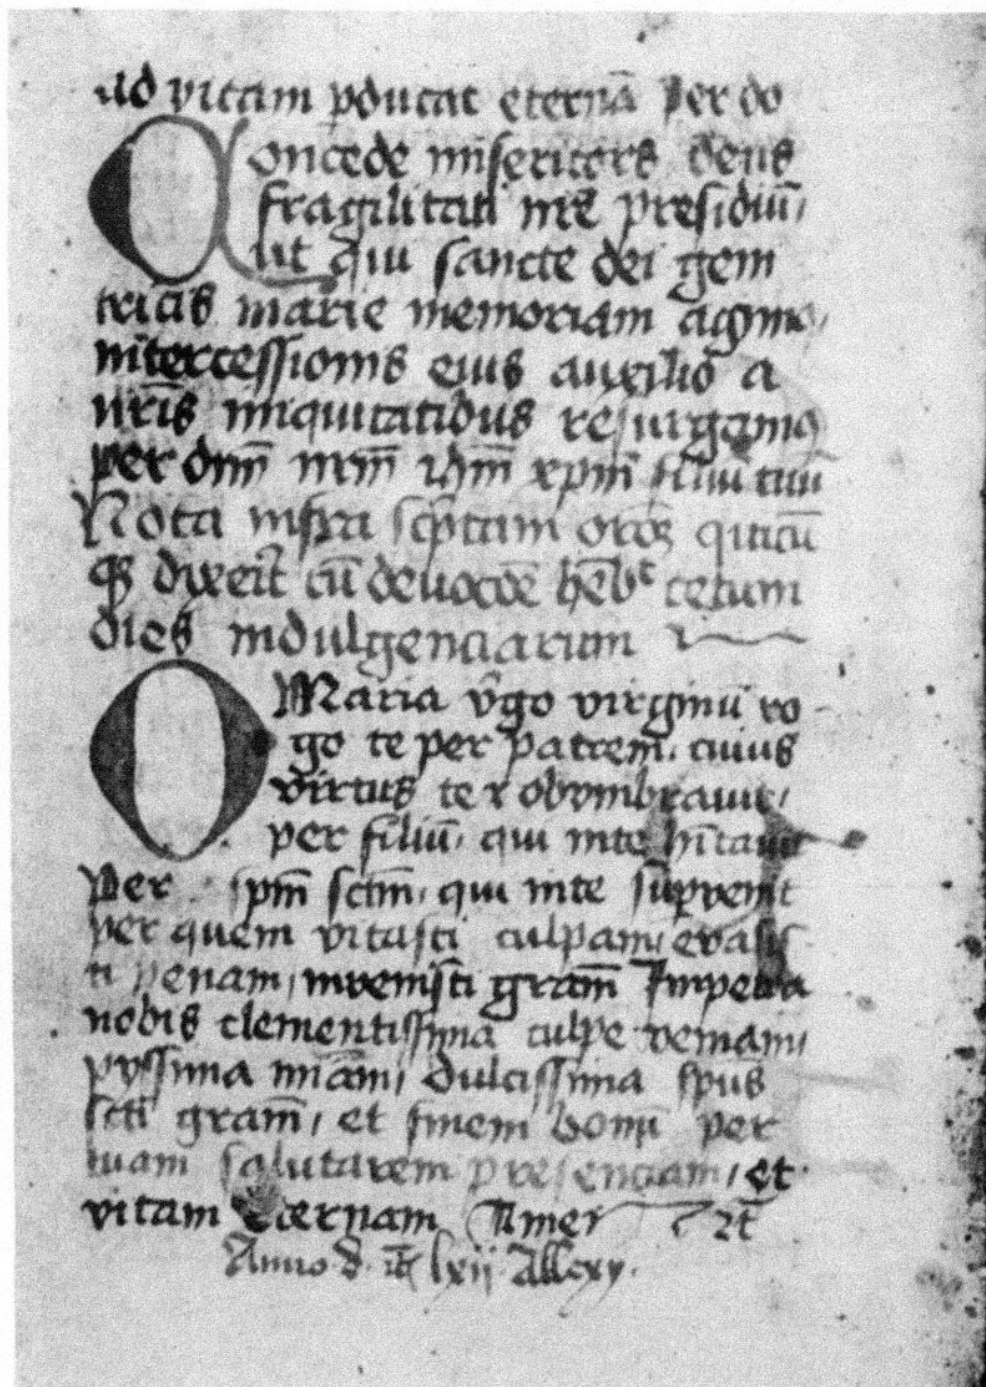 ad vitam ꝑducat eternā Per do
Concede mīsericors deus
fragilitati nr̄e presidiū,
ut qui sancte dei geni
tricis marie memoriam agimꝰ,
intercessionis eius auxilio a
nr̄is iniquitatibus resurgamꝰ
per dnm̄ nrm̄ ihm̄ xpm̄ filiū tuū
Nota infra scͥptam oroēꝫ quicū
qꝫ dixerit cū deuocōe hēbᵗ cētum
dies indulgenciarum
O Maria v̾go virginū ro
go te per patrem, cuius
virtus te obvmbrauit,
per filiū, qui inte hītauit
Per spm̄ sctm̄, qui inte supvenit
per quem vitasti culpam, evasis
ti penam, invenisti gram̄ Impetra
nobis clementissima culpe veniam,
pyssima miām, dulcissima spūs
scti gram̄, et finem bonū per
tuam salutarem presenciam, et
vitam eternam Amen
Anno lxii